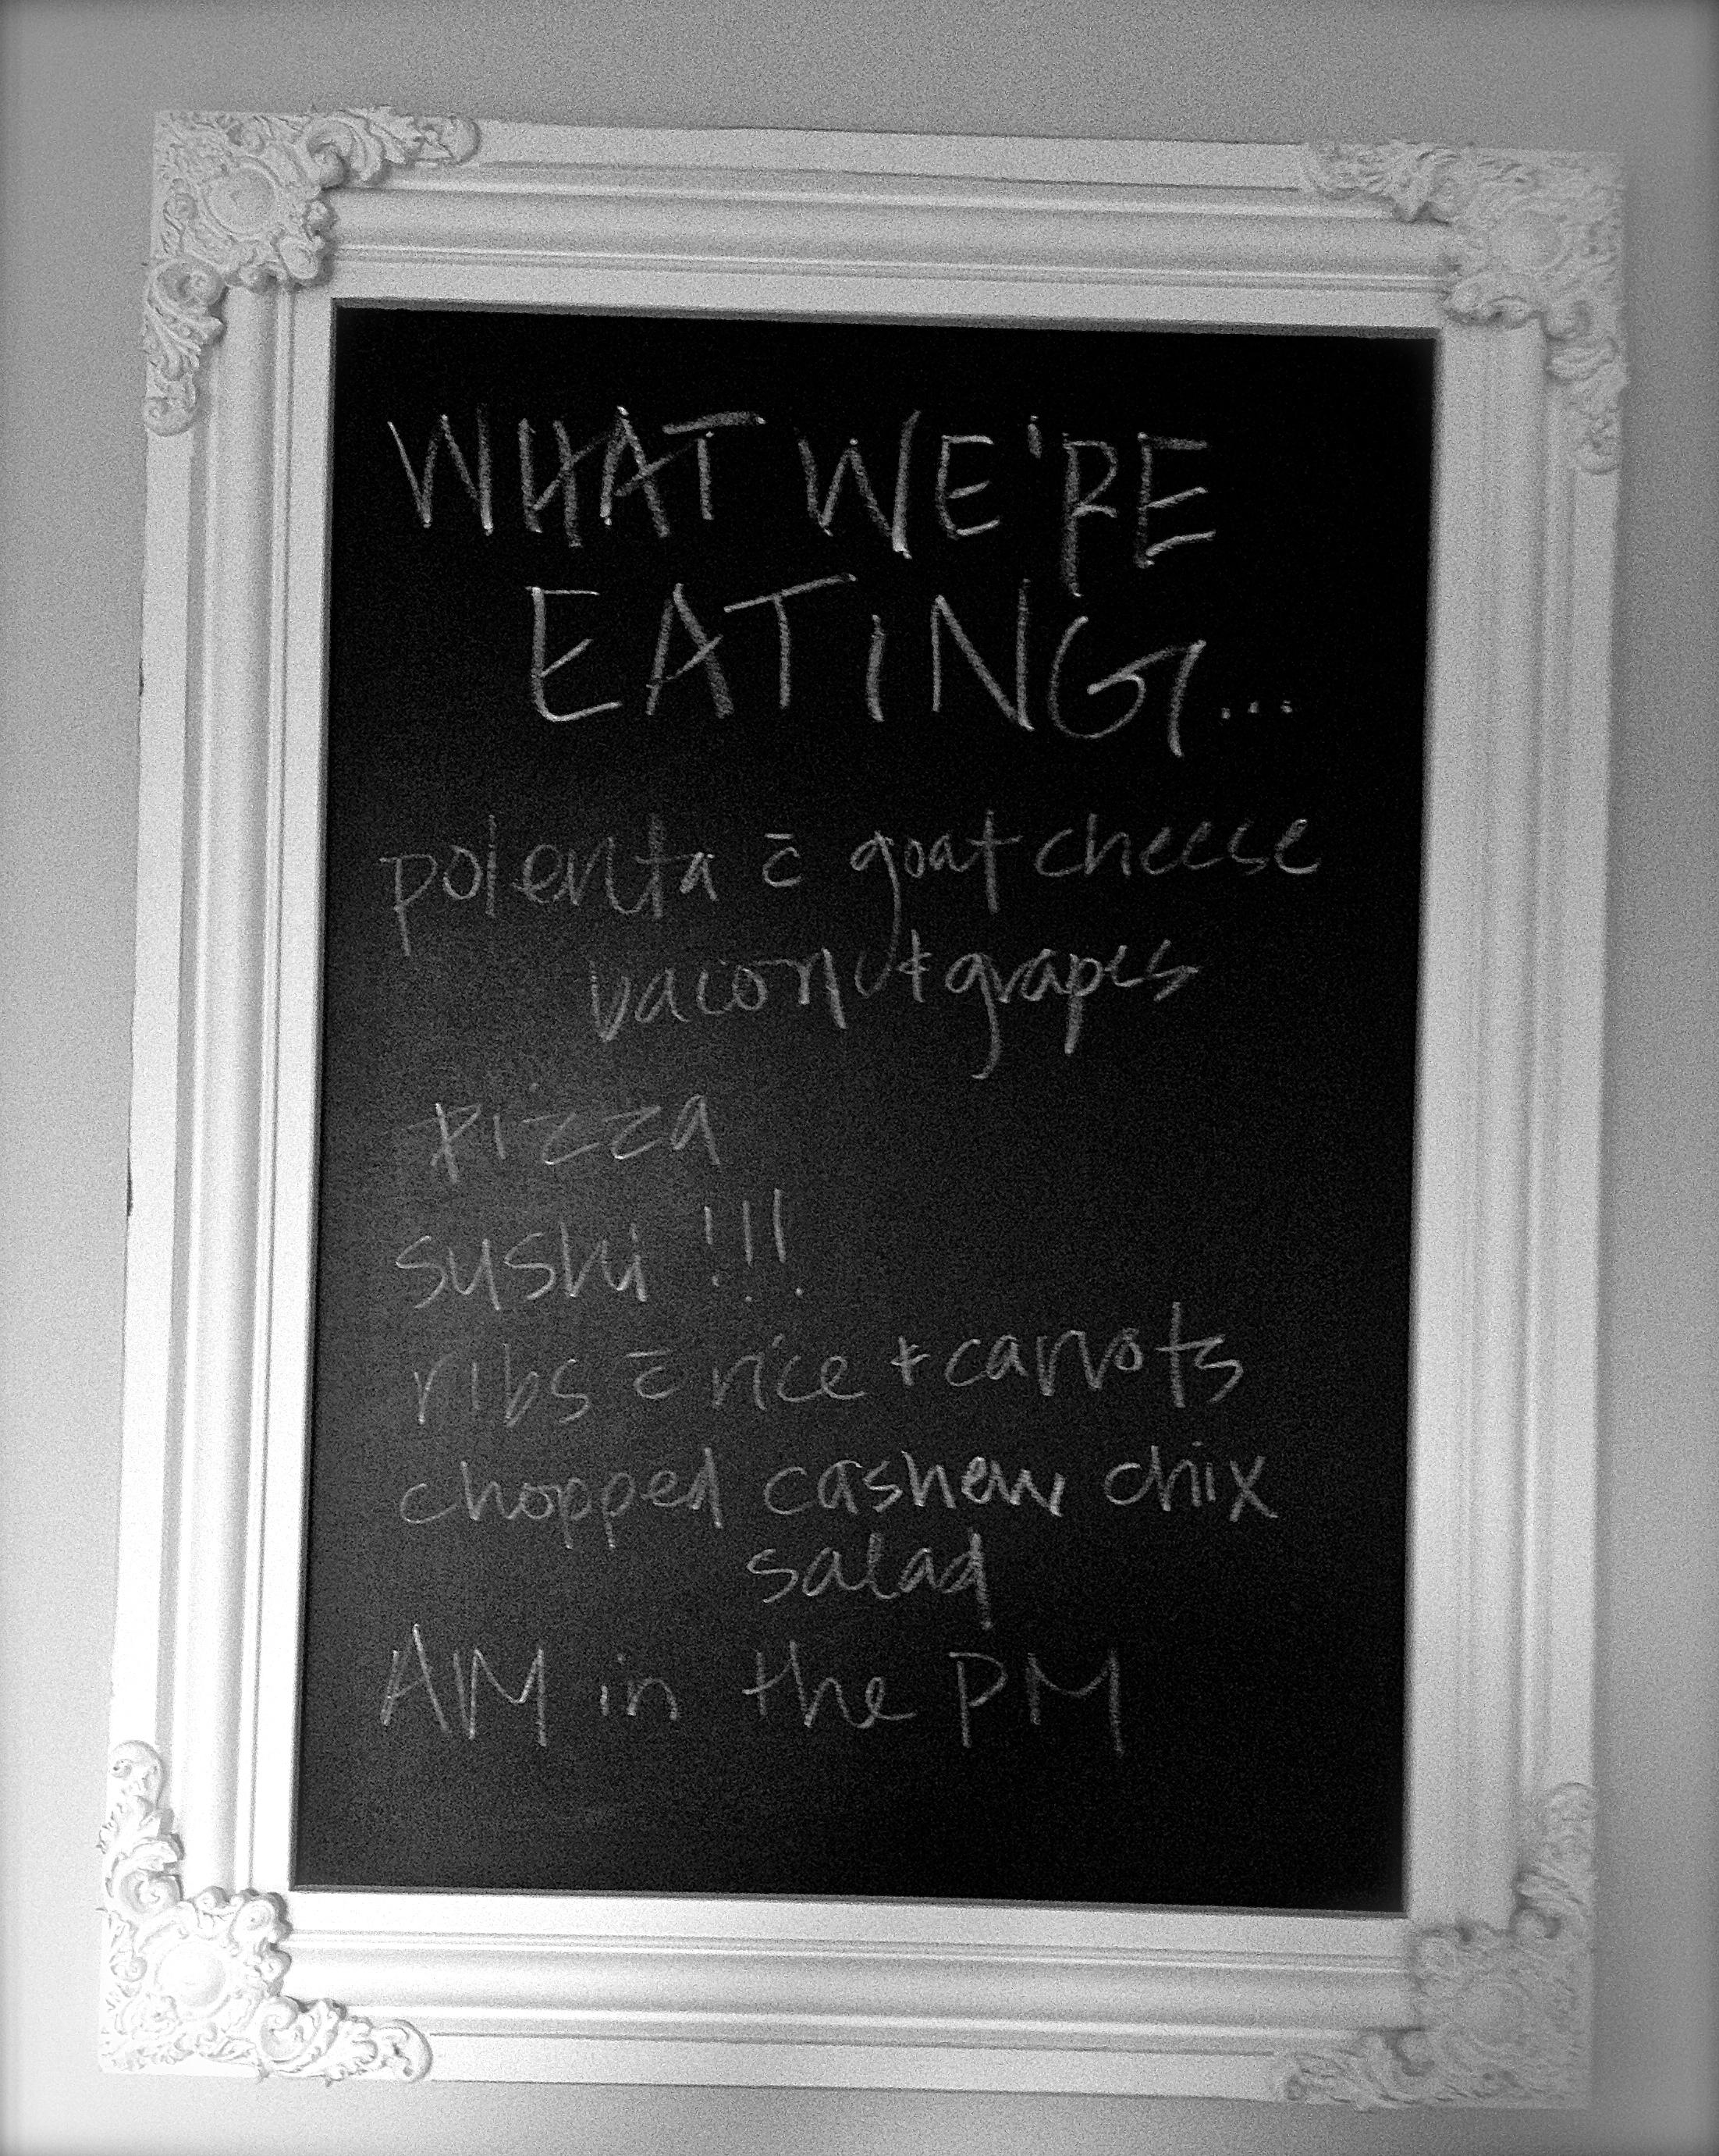 WHAT WE'RE
EATING...
polenta c̄ goat cheese
bacon + grapes
pizza
sushi !!!
ribs c̄ rice + carrots
chopped cashew chix
salad
AM in the PM